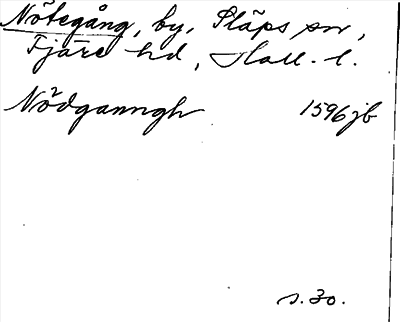 Nötegång, by, Släps sn,
Fjäre hd, Hall. l.
Nödganngh 1596 jb
s. 30.